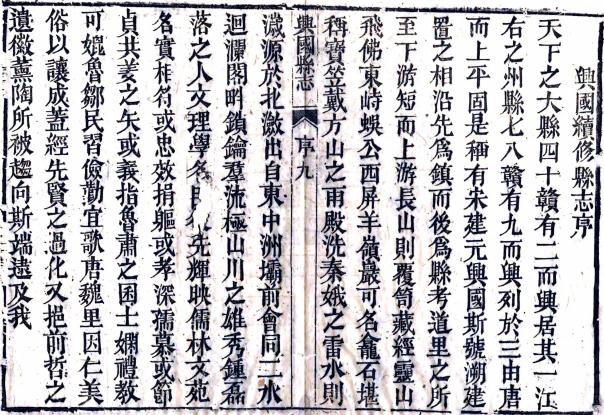 興國續修縣志序
天下之大縣四十贛有二而興居其一江
右之州縣七八贛有九而興列於三由唐
而上平固是稱有宋建元興國斯號溯建
置之相沿先爲鎮而後爲縣考道里之所
至下游短而上游長山則覆笥藏經靈山
飛佛東峙蜈公西屏羊嶺嚴可名龕石堪
稱寶笠戴方山之雨殿洗秦娥之雷水則
興國縣志
序
九
濊源於北瀲出自東中洲壩前會同二水
迴瀾閣畔鎖鑰羣流極山川之雄秀鍾磊
落之人文理學名先輝映儒林文苑
名實相符或忠效捐軀或孝深孺慕或節
貞共姜之矢或義指魯肅之囷士嫻禮教
可媲魯鄒民習儉勤宜歌唐魏里因仁美
俗以讓成蓋經先賢之過化又挹前哲之
遺徽薰陶所被趨向斯端逮及我